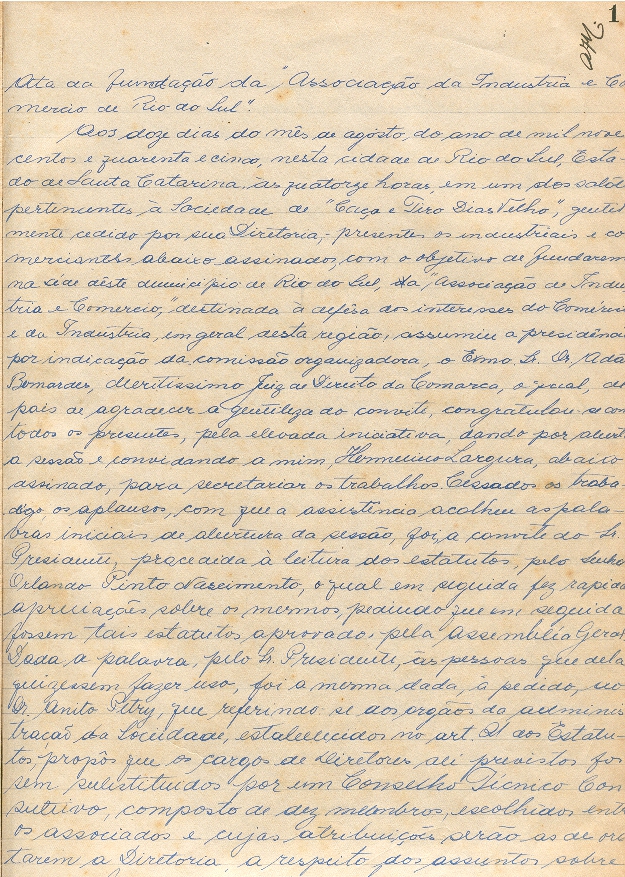 1
Ata da fundação da "Associação da Industria e Co
mercio de Rio do Sul".
Aos doze dias do mês de agosto, do ano de mil nove
centos e quarenta e cinco, nesta cidade de Rio do Sul, Esta-
do de Santa Catarina, às quatorze horas, em um dos salõ
pertinentes, à Sociedade de "Caça e Tiro Dias Velho", gentil
mente cedido por sua Diretoria, presentes os industriais e co
merciantes abaixo assinados, com o objetivo de fundarem
na séde dêste municipio de Rio do Sul, "Associação de Indus
tria e Comercio," destinada à defésa dos interesses do Comérci
e da Industria, em geral desta região, assumiu a presidênci
por indicação da comissão organizadora, o Exmo. Sr. Dr. Ada
Bernardes, Meritissimo Juiz de Direito da Comarca, o qual, de
pois de agradecer a gentileza do convite, congratulou-se con
todos os presentes, pela elevada iniciativa, dando por abert
a sessão e convidando a mim, Hermelino Largura, abaixo
assinado, para secretariar os trabalhos. Cessados os traba
digo, os aplausos, com que a assistência acolheu as pala-
vras iniciais de abertura da sessão, foi, a convite do Sr.
Presidente, procedida à leitura dos estatutos, pelo Senho
Orlando Pinto Nascimento, o qual em seguida fez rapida
apreciações sobre os mesmos pedindo que em seguida
fossem tais estatutos aprovados pela Assembléia Geral
Dada a palavra, pelo Sr. Presidente, às pessoas que dela
quizessem fazer uso, foi a mesma dada, à pedido, ao
Dr. Anito Petry, que referindo-se aos orgãos da adminis
tração da Sociedade, estabelecidos no art. dos Estatu-
tos, propôs que os cargos de Diretores alí previstos fos
sem substituidos por um Conselho Técnico Con
sutivo, composto de dez membros, escolhidos entr
os associados e cujas atribuições serão as de ori
tarem a Diretoria, a respeito dos assuntos sobre